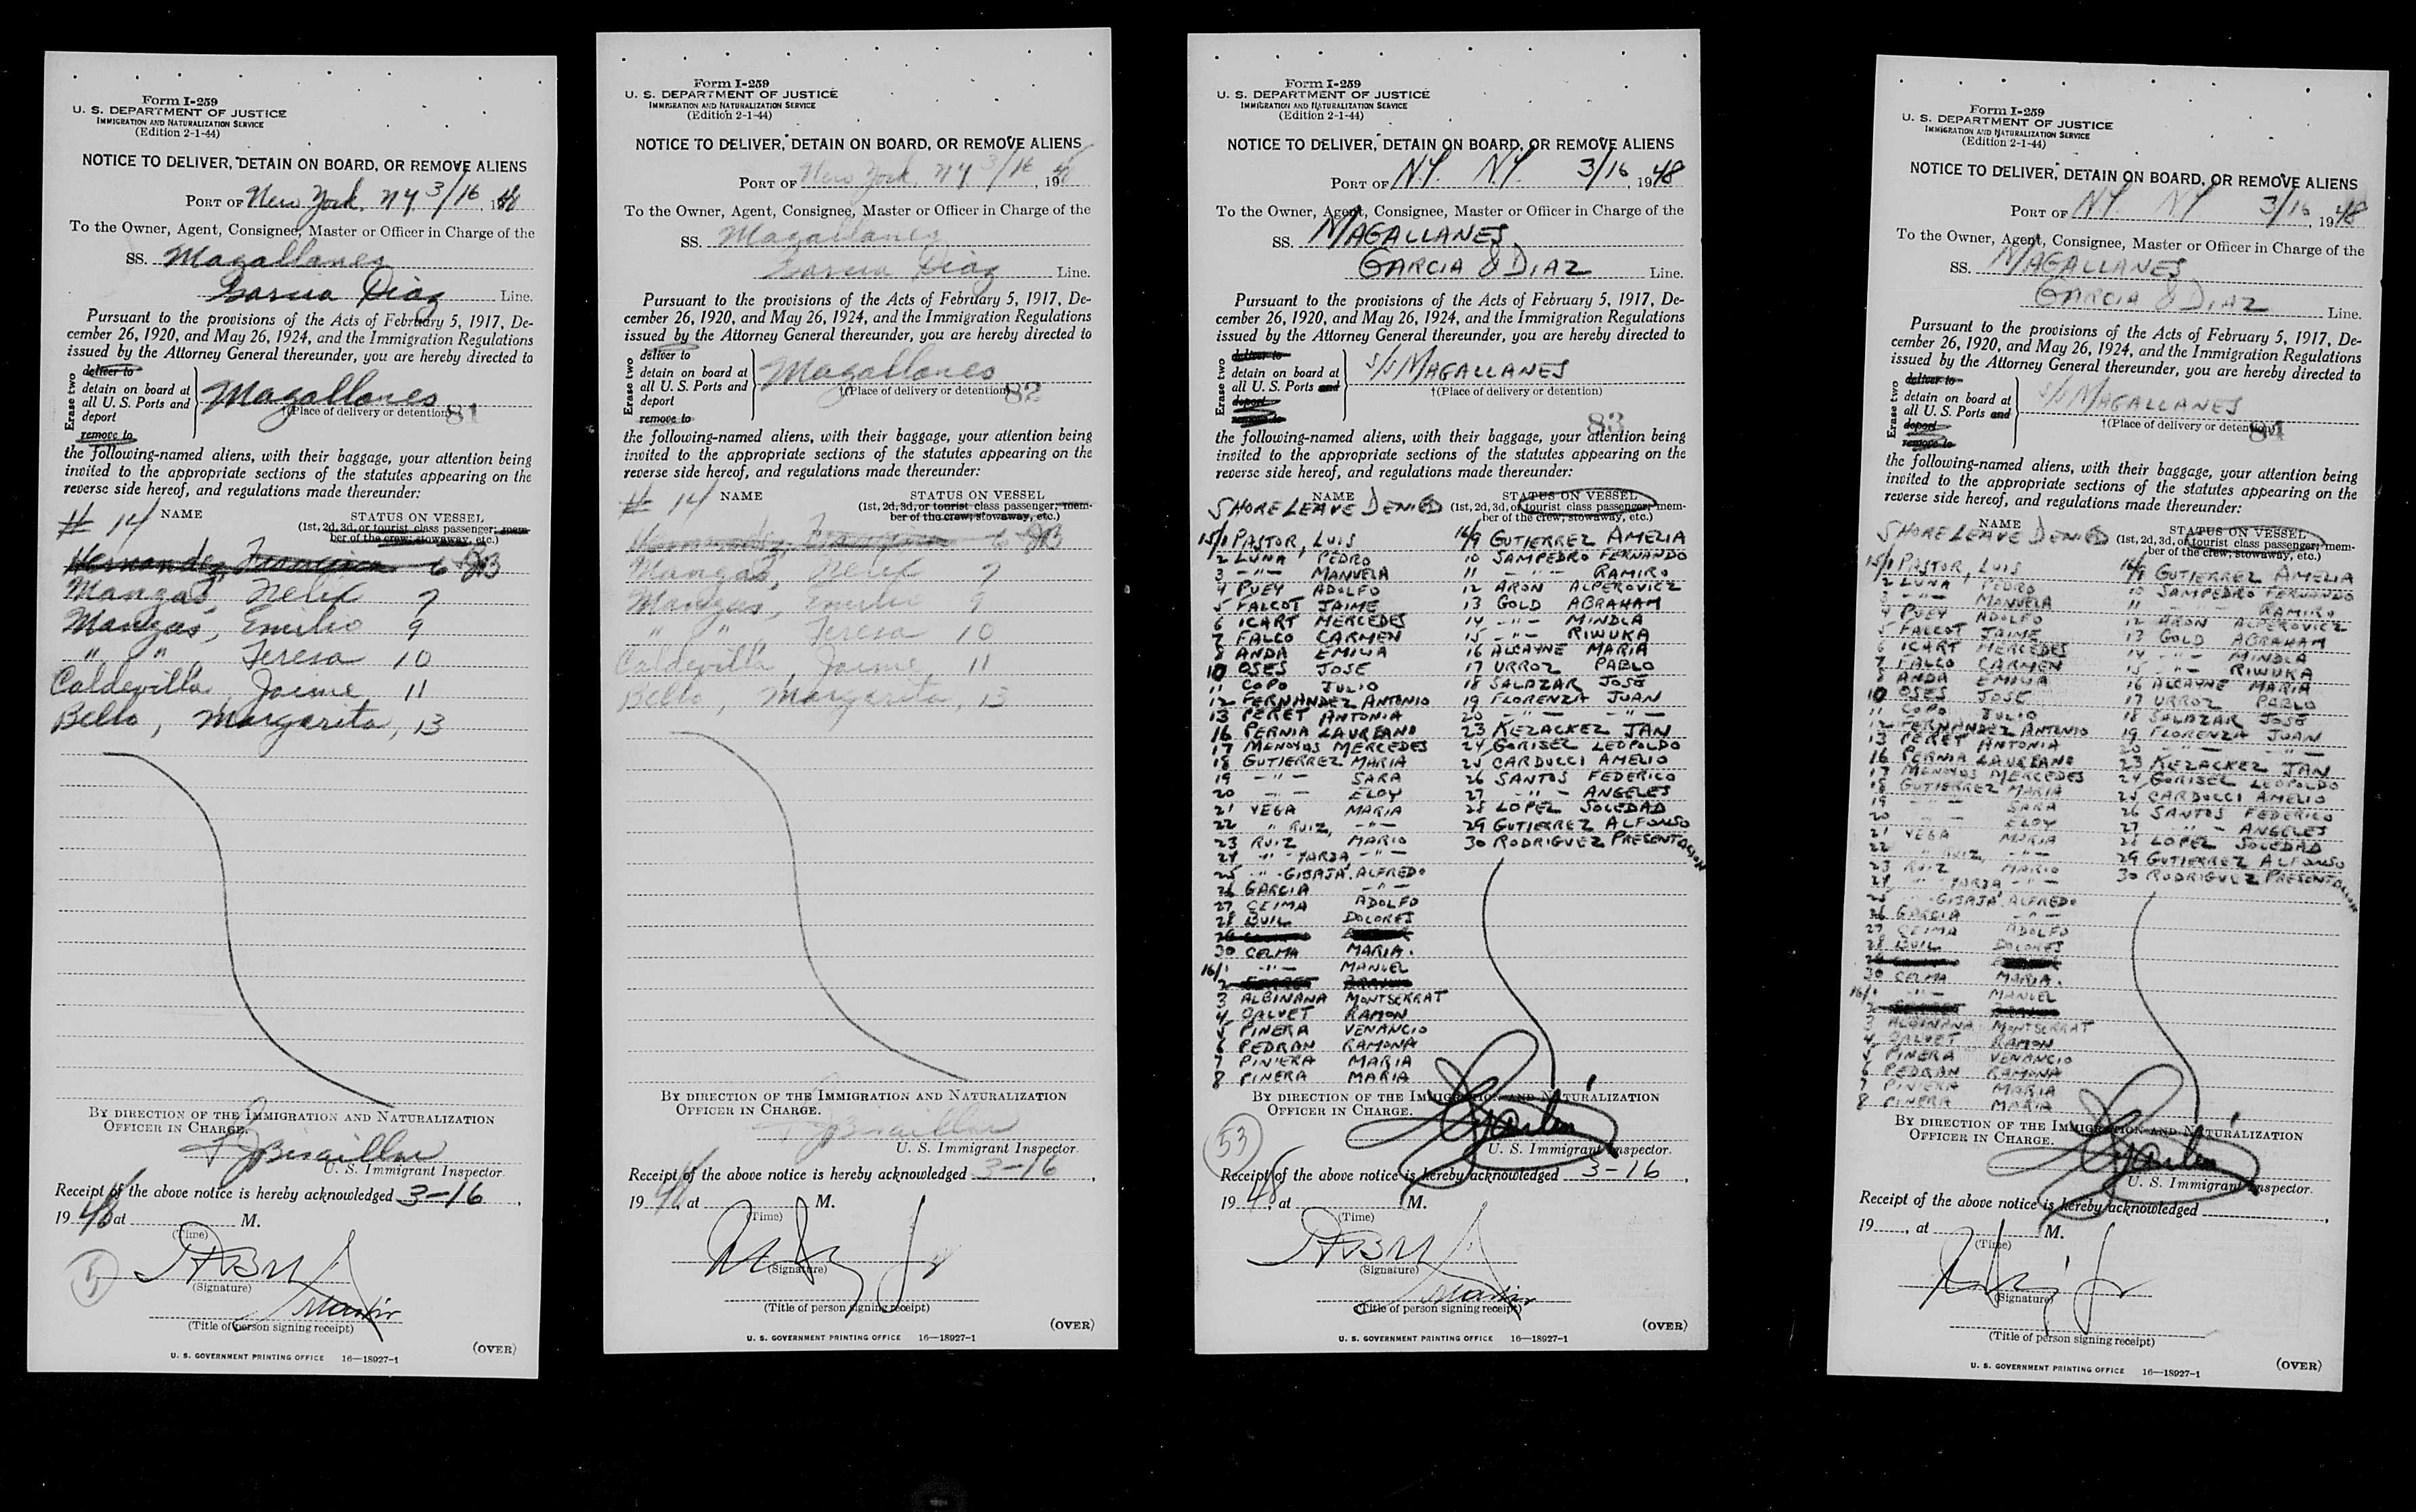 Form I-259
U. S. DEPARTMENT OF JUSTICE
IMMIGRATION AND NATURALIZATION SERVICE
(Edition 2-1-44)
NOTICE TO DELIVER, DETAIN ON BOARD, OR REMOVE ALIENS
PORT OF New York, NY 3/16, 1948
To the Owner, Agent, Consignee, Master or Officer in Charge of the
SS. Magallanes
Garcia Diaz Line.
Pursuant to the provisions of the Acts of February 5, 1917, De-
cember 26, 1920, and May 26, 1924, and the Immigration Regulations
issued by the Attorney General thereunder, you are hereby directed to
Erase two
deliver to
detain on board at
all U. S. Ports and
deport
remove to
Magallanes
†(Place of delivery or detention)
81
the following-named aliens, with their baggage, your attention being
invited to the appropriate sections of the statutes appearing on the
reverse side hereof, and regulations made thereunder:
# 14 NAME STATUS ON VESSEL
(1st, 2d, 3d, or tourist class passenger; mem-
ber of the crew; stowaway, etc.)
Hernandez, 6
Mangas, Nelix 7
Mangas, Emilio 9
" " Teresa 10
Caldevilla, Jaime 11
Bello, Margarita, 13
BY DIRECTION OF THE IMMIGRATION AND NATURALIZATION
OFFICER IN CHARGE.
U. S. Immigrant Inspector.
Receipt of the above notice is hereby acknowledged 3-16,
1948 at M.
(Time)
(Signature)
(Title of person signing receipt)
(OVER)
U. S. GOVERNMENT PRINTING OFFICE 16—18927-1
Form I-259
U. S. DEPARTMENT OF JUSTICE
IMMIGRATION AND NATURALIZATION SERVICE
(Edition 2-1-44)
NOTICE TO DELIVER, DETAIN ON BOARD, OR REMOVE ALIENS
PORT OF New York, NY 3/16, 1948
To the Owner, Agent, Consignee, Master or Officer in Charge of the
SS. Magallanes
Garcia Diaz Line.
Pursuant to the provisions of the Acts of February 5, 1917, De-
cember 26, 1920, and May 26, 1924, and the Immigration Regulations
issued by the Attorney General thereunder, you are hereby directed to
Erase two
deliver to
detain on board at
all U. S. Ports and
deport
remove to
Magallanes
†(Place of delivery or detention)
82
the following-named aliens, with their baggage, your attention being
invited to the appropriate sections of the statutes appearing on the
reverse side hereof, and regulations made thereunder:
# 14 NAME STATUS ON VESSEL
(1st, 2d, 3d, or tourist class passenger; mem-
ber of the crew; stowaway, etc.)
Hernandez, 6
Mangas, Nelix 7
Mangas, Emilio 9
" " Teresa 10
Caldevilla, Jaime 11
Bello, Margarita, 13
BY DIRECTION OF THE IMMIGRATION AND NATURALIZATION
OFFICER IN CHARGE.
U. S. Immigrant Inspector.
Receipt of the above notice is hereby acknowledged 3-16,
1948, at M.
(Time)
(Signature)
(Title of person signing receipt)
(OVER)
U. S. GOVERNMENT PRINTING OFFICE 16—18927-1
Form I-259
U. S. DEPARTMENT OF JUSTICE
IMMIGRATION AND NATURALIZATION SERVICE
(Edition 2-1-44)
NOTICE TO DELIVER, DETAIN ON BOARD, OR REMOVE ALIENS
PORT OF N.Y. N.Y. 3/16, 1948
To the Owner, Agent, Consignee, Master or Officer in Charge of the
SS. MAGALLANES
GARCIA & DIAZ Line.
Pursuant to the provisions of the Acts of February 5, 1917, De-
cember 26, 1920, and May 26, 1924, and the Immigration Regulations
issued by the Attorney General thereunder, you are hereby directed to
Erase two
deliver to
detain on board at
all U. S. Ports and
deport
remove to
S/S MAGALLANES
†(Place of delivery or detention)
83
the following-named aliens, with their baggage, your attention being
invited to the appropriate sections of the statutes appearing on the
reverse side hereof, and regulations made thereunder:
NAME STATUS ON VESSEL
SHORE LEAVE DENIED (1st, 2d, 3d, or tourist class passenger; mem-
ber of the crew; stowaway, etc.)
15/1 PASTOR, LUIS 16/9 GUTIERREZ AMELIA
2 LUNA PEDRO 10 SAMPEDRO FERNANDO
3 -"- MANUELA 11 -"- RAMIRO
4 PUEY ADOLFO 12 ARON ALPEROVICZ
5 FALCOT JAIME 13 GOLD ABRAHAM
6 ICART MERCEDES 14 -"- MINDLA
7 FALCO CARMEN 15 -"- RIWUKA
8 ANDA EMILIA 16 ALCAYNE MARIA
10 OSES JOSE 17 URROZ PABLO
11 COPO JULIO 18 SALAZAR JOSE
12 FERNANDEZ ANTONIO 19 FLORENZA JUAN
13 PERET ANTONIA 20 — -"-
16 PERNIA LAUREANO 23 KEZACKEZ JAN
17 MENOYOS MERCEDES 24 GORISEL LEOPOLDO
18 GUTIERREZ MARIA 25 CARDUCCI AMELIO
19 -"- SARA 26 SANTOS FEDERICO
20 -"- ELOY 27 -"- ANGELES
21 VEGA MARIA 28 LOPEZ SOLEDAD
22 " RUIZ, -"- 29 GUTIERREZ ALFONSO
23 RUIZ MARIO 30 RODRIGUEZ PRESENTACION
24 " YARZA -"-
25 -"- GIBAJA ALFREDO
26 GARCIA -"-
27 CEIMA ADOLFO
28 BUIL DOLORES
30 CELMA MARIA.
16/1 -"- MANUEL
3 ALBINANA MONTSERRAT
4 CALVET RAMON
5 PINERA VENANCIO
6 PEDRAN RAMONA
7 PINIERA MARIA
8 PINERA MARIA
BY DIRECTION OF THE IMMIGRATION AND NATURALIZATION
OFFICER IN CHARGE.
53
U. S. Immigrant Inspector.
Receipt of the above notice is hereby acknowledged 3-16,
1948, at M.
(Time)
(Signature)
(Title of person signing receipt)
(OVER)
U. S. GOVERNMENT PRINTING OFFICE 16—18927-1
Form I-259
U. S. DEPARTMENT OF JUSTICE
IMMIGRATION AND NATURALIZATION SERVICE
(Edition 2-1-44)
NOTICE TO DELIVER, DETAIN ON BOARD, OR REMOVE ALIENS
PORT OF N.Y. N.Y. 3/16, 1948
To the Owner, Agent, Consignee, Master or Officer in Charge of the
SS. MAGALLANES
GARCIA & DIAZ Line.
Pursuant to the provisions of the Acts of February 5, 1917, De-
cember 26, 1920, and May 26, 1924, and the Immigration Regulations
issued by the Attorney General thereunder, you are hereby directed to
Erase two
deliver to
detain on board at
all U. S. Ports and
deport
remove to
S/S MAGALLANES
†(Place of delivery or detention)
84
the following-named aliens, with their baggage, your attention being
invited to the appropriate sections of the statutes appearing on the
reverse side hereof, and regulations made thereunder:
NAME STATUS ON VESSEL
SHORE LEAVE DENIED (1st, 2d, 3d, or tourist class passenger; mem-
ber of the crew; stowaway, etc.)
15/1 PASTOR, LUIS 16/9 GUTIERREZ AMELIA
2 LUNA PEDRO 10 SAMPEDRO FERNANDO
3 -"- MANUELA 11 -"- RAMIRO
4 PUEY ADOLFO 12 ARON ALPEROVICZ
5 FALCOT JAIME 13 GOLD ABRAHAM
6 ICART MERCEDES 14 -"- MINDLA
7 FALCO CARMEN 15 -"- RIWUKA
8 ANDA EMILIA 16 ALCAYNE MARIA
10 OSES JOSE 17 URROZ PABLO
11 COPO JULIO 18 SALAZAR JOSE
12 FERNANDEZ ANTONIO 19 FLORENZA JUAN
13 PERET ANTONIA 20 -"- -"-
16 PERNIA LAUREANO 23 KEZACKEZ JAN
17 MENOYOS MERCEDES 24 GORISEL LEOPOLDO
18 GUTIERREZ MARIA 25 CARDUCCI AMELIO
19 -"- SARA 26 SANTOS FEDERICO
20 -"- ELOY 27 -"- ANGELES
21 VEGA MARIA 28 LOPEZ SOLEDAD
22 " RUIZ, -"- 29 GUTIERREZ ALFONSO
23 RUIZ MARIO 30 RODRIGUEZ PRESENTACION
24 " YARZA -"-
25 -"- GIBAJA ALFREDO
26 GARCIA -"-
27 CEIMA ADOLFO
28 BUIL DOLORES
30 CELMA MARIA.
16/1 -"- MANUEL
3 ALBINANA MONTSERRAT
4 CALVET RAMON
5 PINERA VENANCIO
6 PEDRAN RAMONA
7 PINIERA MARIA
8 PINERA MARIA
BY DIRECTION OF THE IMMIGRATION AND NATURALIZATION
OFFICER IN CHARGE.
U. S. Immigrant Inspector.
Receipt of the above notice is hereby acknowledged
19, at M.
(Time)
(Signature)
(Title of person signing receipt)
(OVER)
U. S. GOVERNMENT PRINTING OFFICE 16—18927-1